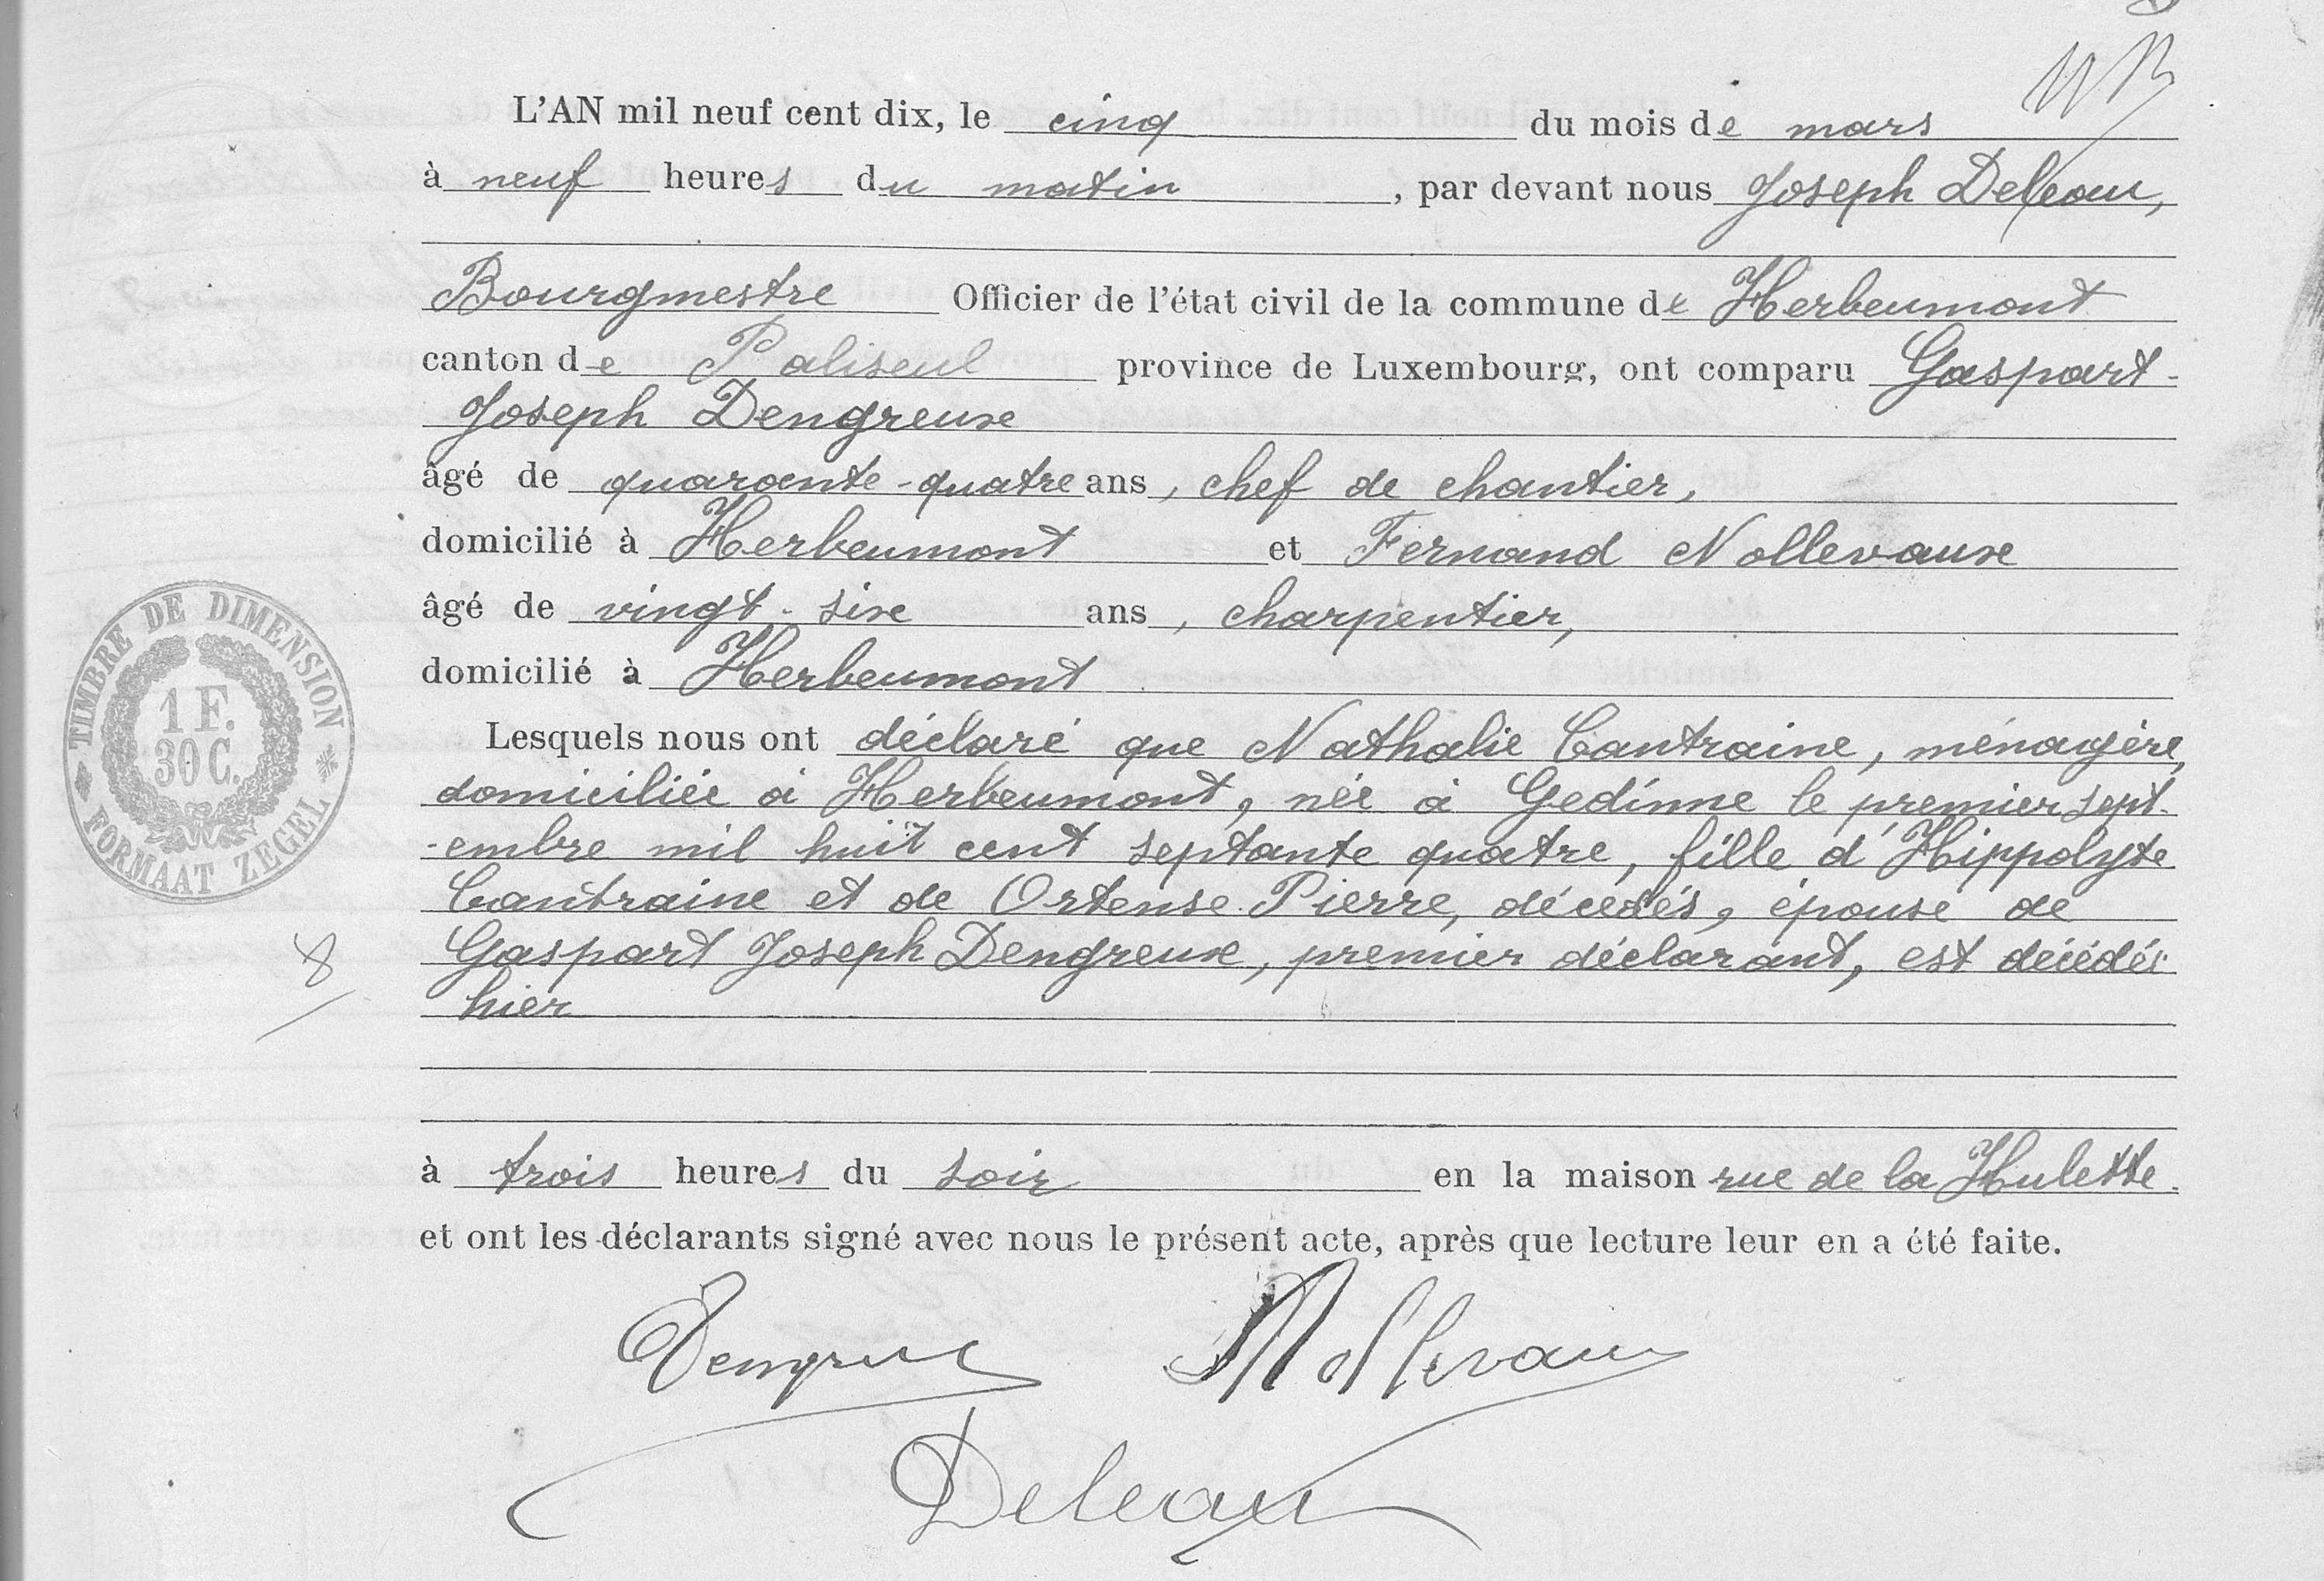 L'AN mil neuf cent dix, le cinq du mois de mars
à neuf heures du matin, par devant nous Joseph Deleau,
Bourgmestre Officier de l'état civil de la commune de Herbeumont
canton de Paliseul province de Luxembourg, ont comparu Gaspart-
Joseph Dengreux
âgé de quarante-quatre ans, chef de chantier,
domicilié à Herbeumont et Fernand Nollevaux
âgé de vingt-six ans, charpentier,
domicilié à Herbeumont
Lesquels nous ont déclaré que Nathalie Cantraine, ménagère,
domiciliée à Herbeumont, née à Gedinne le premier sept-
-embre mil huit cent septante quatre, fille d'Hippolyte
Cantraine et de Ortense Pierre, décédés, épouse de
Gaspart Joseph Dengreux, premier déclarant, est décédée
hier
à trois heures du soir en la maison rue de la Hulette.
et ont les déclarants signé avec nous le présent acte, après que lecture leur en a été faite.
Nollevaux
Deleau
TIMBRE DE DIMENSION
1 F.
30 C.
FORMAAT ZEGEL
8